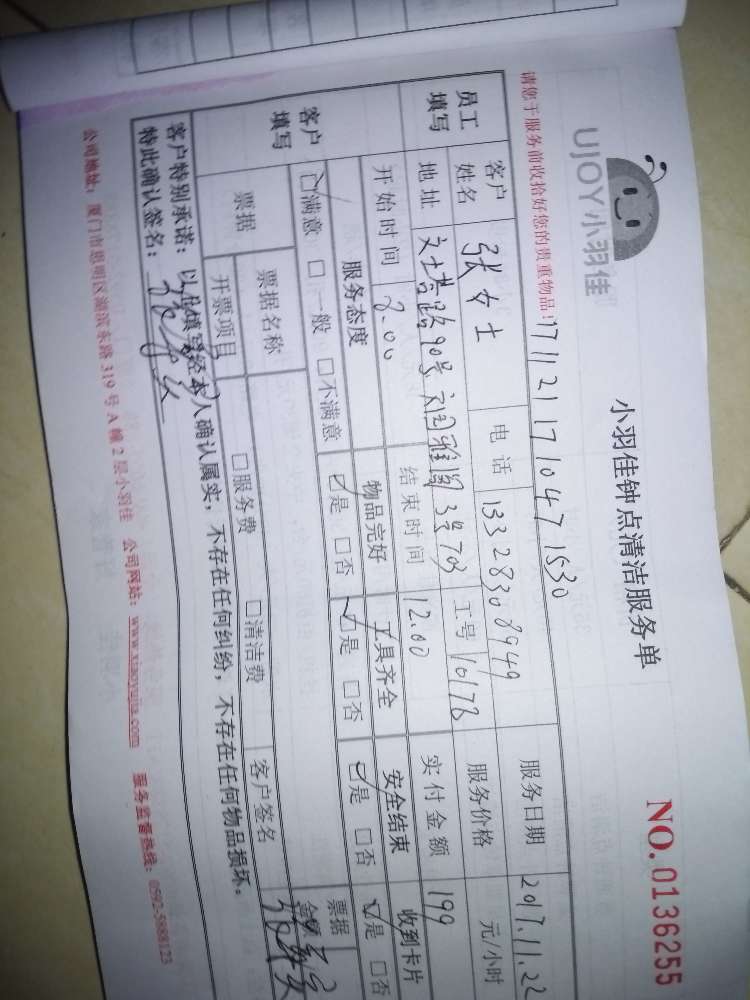 UJOY小羽佳
小羽佳钟点清洁服务单
NO.0136255
请您于服务前收拾好您的贵重物品!
17112117104771530
员工填写
客户姓名 张女士 电话 13328308949 服务日期 2017.11.22
地址 90号 3号703 工号 10178 服务价格 元/小时
开始时间 8.00 结束时间 12.00 实付金额 199
客户填写
服务态度 物品完好 工具齐全 安全结束 收到卡片
满意 一般 不满意 是 否 是 否 是 否 是 否
票据 票据名称 服务费 清洁费 客户签名 票据
开票项目
客户特别承诺:以上填写经本人确认属实,不存在任何纠纷,不存在任何物品损坏。
特此确认签名:
公司地址:厦门市思明区湖滨东路319号A幢2层小羽佳 公司网站:www.xiaoyujia.com 服务监督热线:0592-5888123